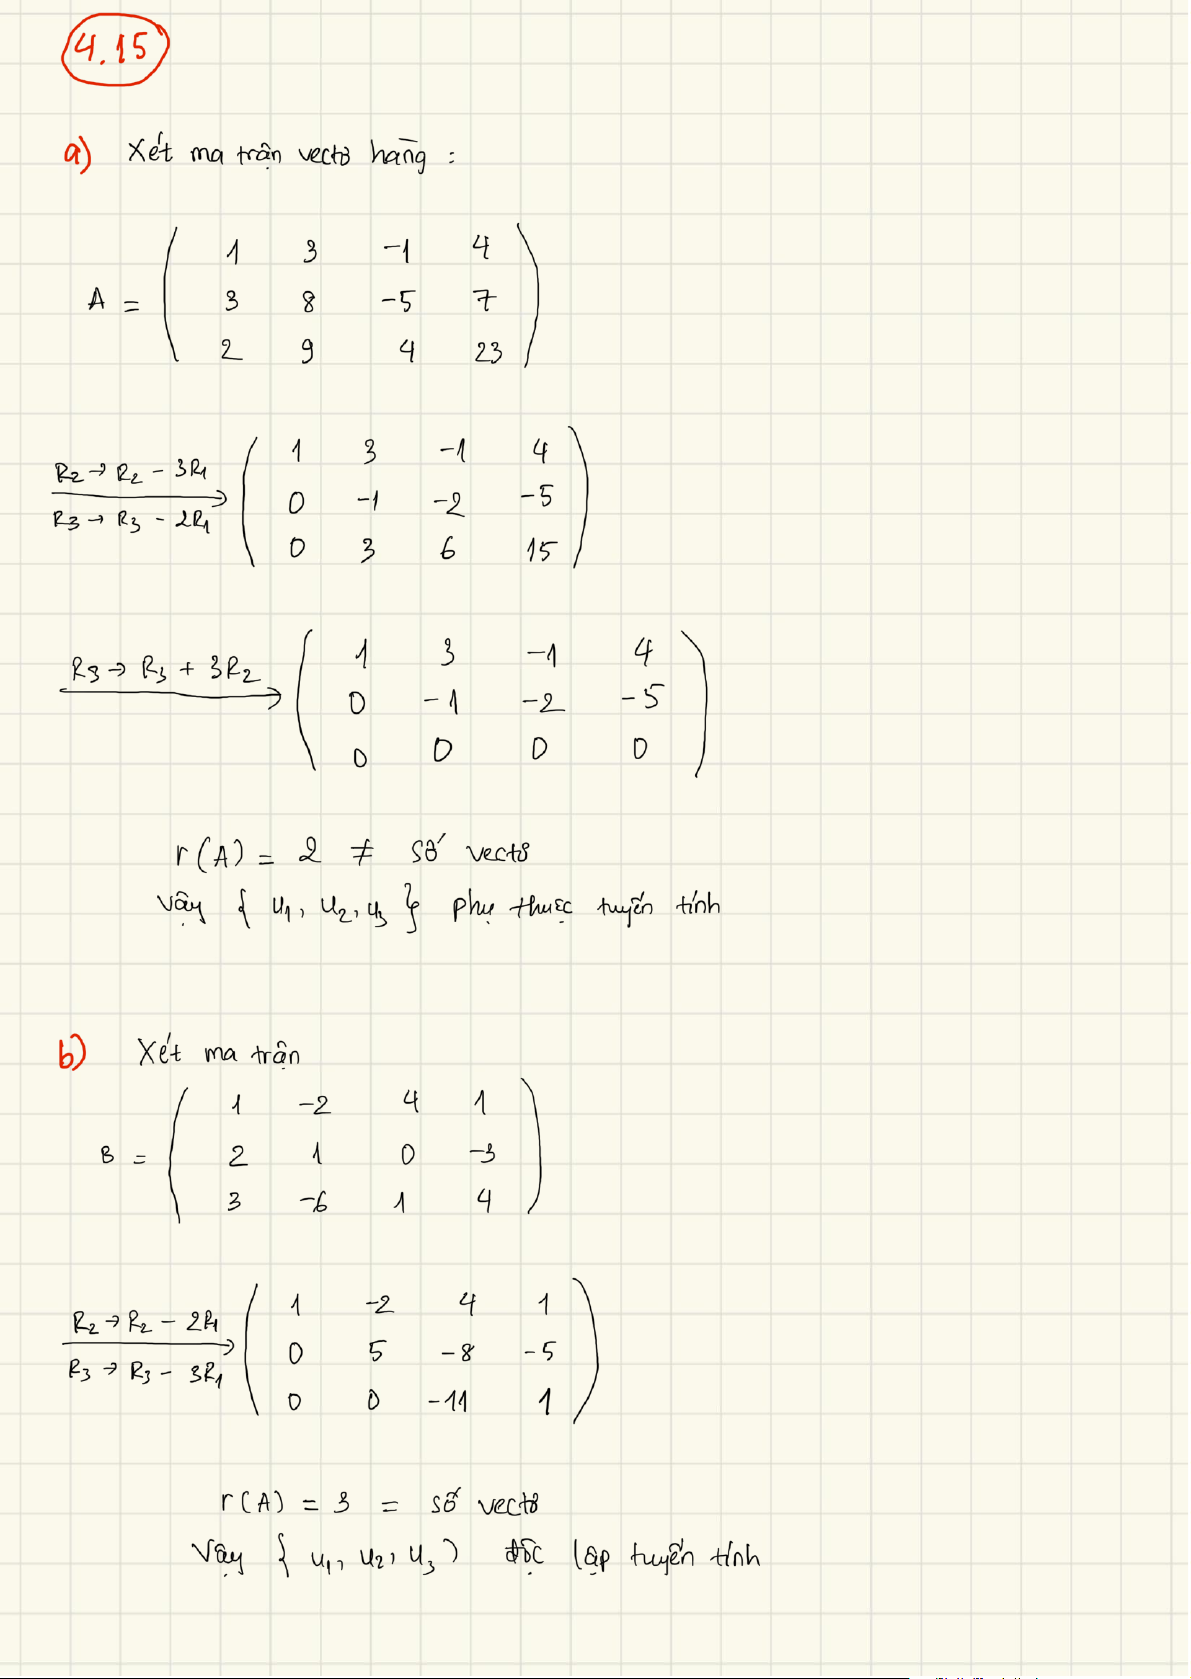 4.15
a) Xét ma trận vectơ hàng :
A = ( 1 3 -1 4
3 8 -5 7
2 9 4 23 )
R2 → R2 - 3R1
R3 → R3 - 2R1
( 1 3 -1 4
0 -1 -2 -5
0 3 6 15 )
R3 → R3 + 3R2
( 1 3 -1 4
0 -1 -2 -5
0 0 0 0 )
r(A) = 2 ≠ số vectơ
Vậy { u1, u2, u3 } phụ thuộc tuyến tính
b) Xét ma trận
B = ( 1 -2 4 1
2 1 0 -3
3 -6 1 4 )
R2 → R2 - 2R1
R3 → R3 - 3R1
( 1 -2 4 1
0 5 -8 -5
0 0 -11 1 )
r(A) = 3 = số vectơ
Vậy { u1, u2, u3 ) độc lập tuyến tính